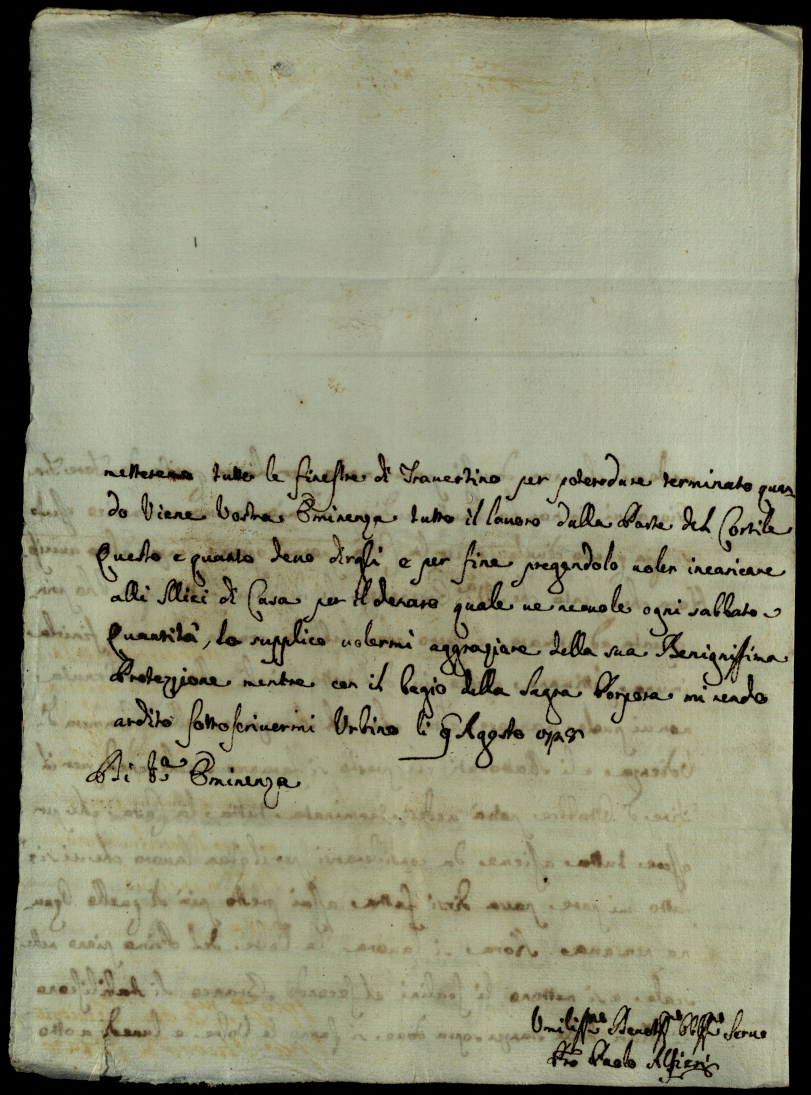 metteremo tutte le finestre di Travertino per poterdare terminato quan
do Viene Vostra Eminenza tutto il lavoro dalla Parte del Cortile
Questo e quanto devo dirgli e per fine pregandolo voler incaricare
alli Misi di Casa per il denaro quale ve ne vuole ogni sabbato
Quantità, lo supplico volermi aggraziare della sua Benignissima
Protezzione mentre con il bagio della Sagra Porpora mi rendo
ardito sottoscrivermi Urbino li 9 Agosto
Di V.a Eminenza
Umiliss.mo Devot.mo Obb.mo Servo
Pro Paolo Alfieri